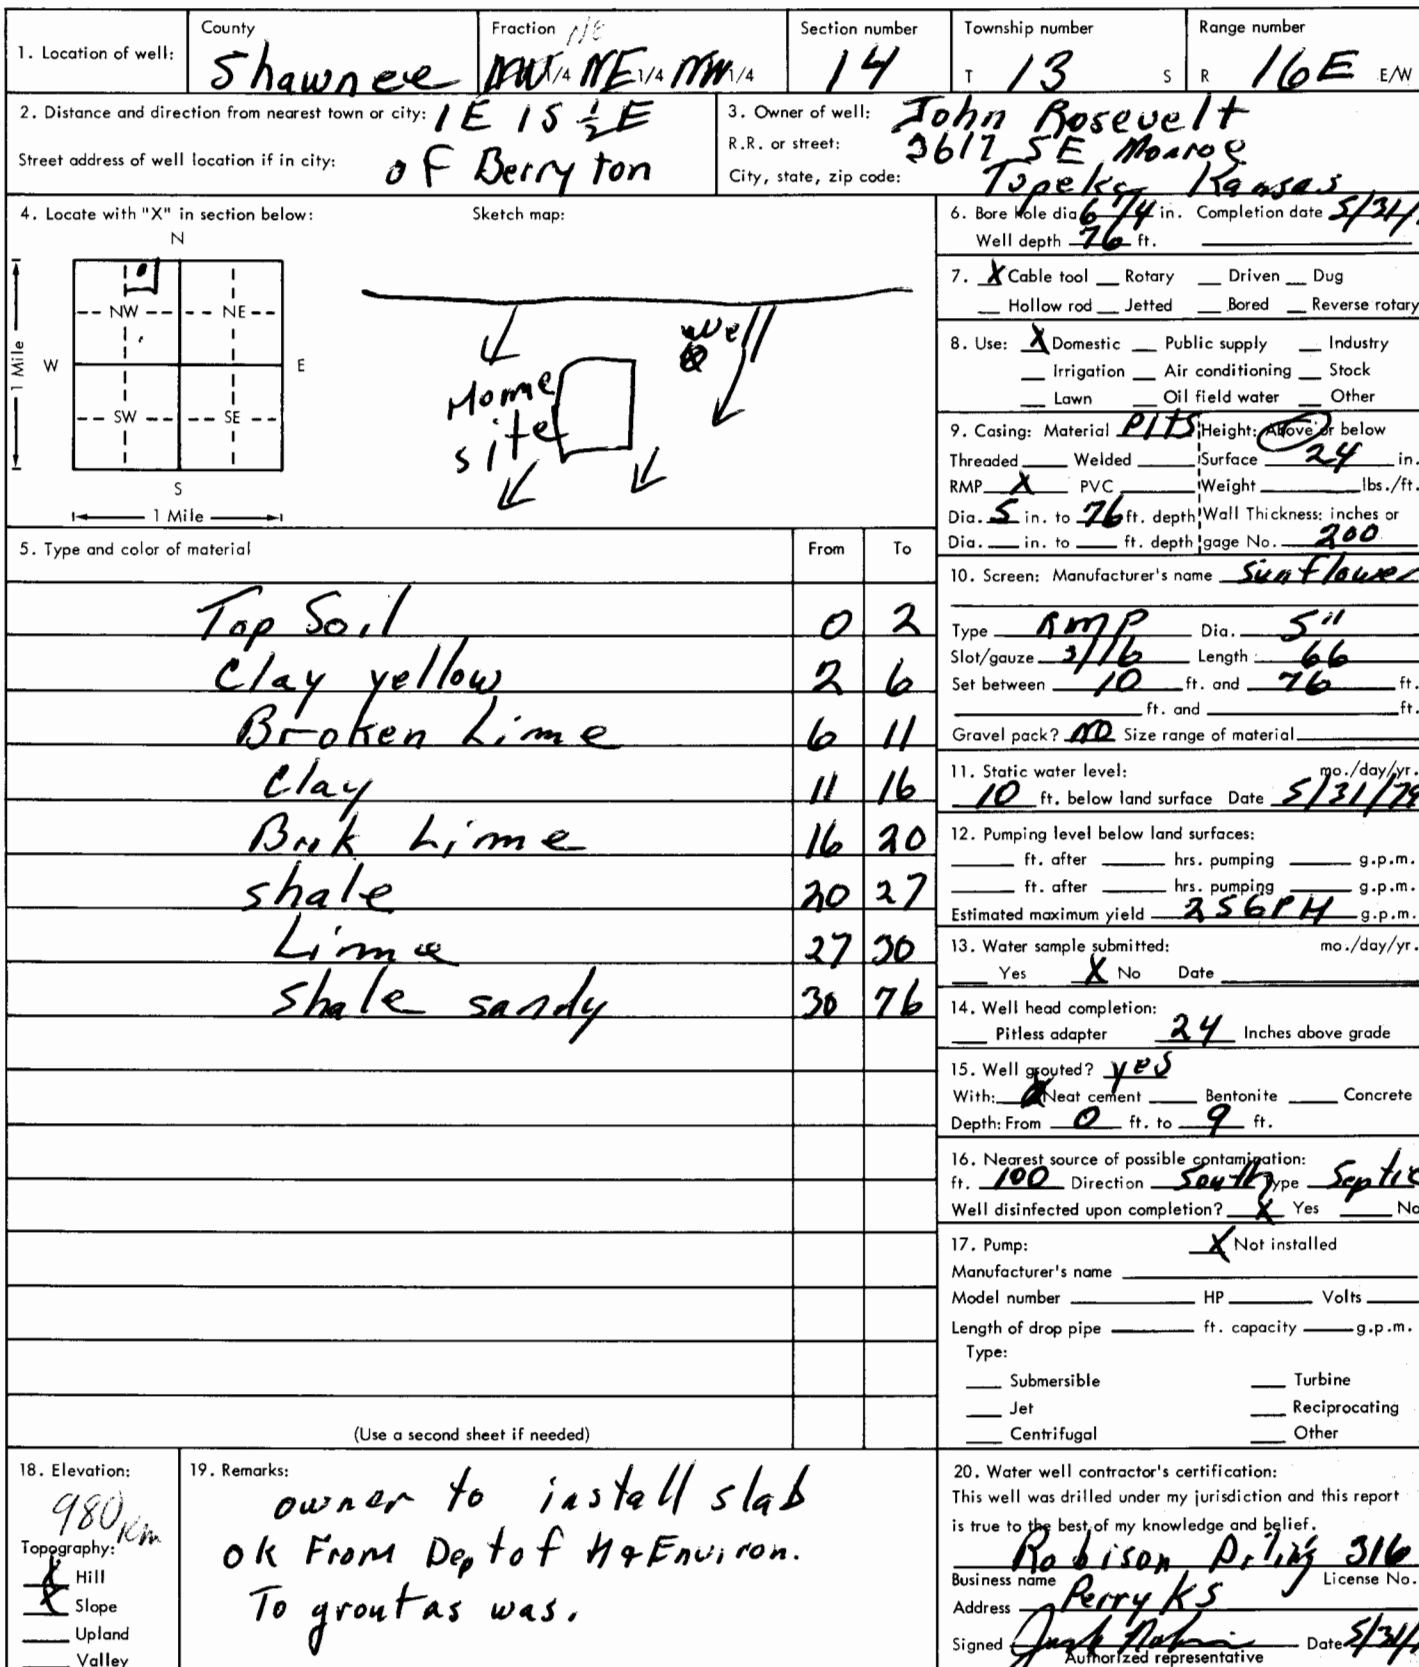 1. Location of well: County Shawnee Fraction NE 1/4 NE 1/4 NW 1/4 Section number 14 Township number T 13 S Range number R 16E E/W
2. Distance and direction from nearest town or city: 1E 1S ½E
Street address of well location if in city: of Berryton
3. Owner of well: John Rosevelt
R.R. or street: 3617 SE Monroe
City, state, zip code: Topeka, Kansas
4. Locate with "X" in section below:
N
NW NE
W E
SW SE
S
1 Mile
1 Mile
Sketch map:
well
Home
site
5. Type and color of material From To
Top Soil 0 2
Clay yellow 2 6
Broken Lime 6 11
Clay 11 16
Brok Lime 16 20
shale 20 27
Lime 27 30
shale sandy 30 76
(Use a second sheet if needed)
6. Bore Hole dia 6 3/4 in. Completion date 5/31/
Well depth 76 ft.
7. X Cable tool __ Rotary __ Driven __ Dug
__ Hollow rod __ Jetted __ Bored __ Reverse rotary
8. Use: X Domestic __ Public supply __ Industry
__ Irrigation __ Air conditioning __ Stock
__ Lawn __ Oil field water __ Other
9. Casing: Material Height: Above or below
Threaded ____ Welded ____ Surface 24 in.
RMP X PVC ____ Weight ____ lbs./ft.
Dia. 5 in. to 76 ft. depth Wall Thickness: inches or
Dia. __ in. to __ ft. depth gage No. 200
10. Screen: Manufacturer's name Sunflower
Type RMP Dia. 5"
Slot/gauze 3/16 Length 66
Set between 10 ft. and 76 ft.
____ ft. and ____ ft.
Gravel pack? NO Size range of material ____
11. Static water level: mo./day/yr.
10 ft. below land surface Date 5/31/79
12. Pumping level below land surfaces:
____ ft. after ____ hrs. pumping ____ g.p.m.
____ ft. after ____ hrs. pumping ____ g.p.m.
Estimated maximum yield 25GPH g.p.m.
13. Water sample submitted: mo./day/yr.
__ Yes X No Date ____
14. Well head completion:
__ Pitless adapter 24 Inches above grade
15. Well grouted? yes
With: X Neat cement ____ Bentonite ____ Concrete
Depth: From 0 ft. to 9 ft.
16. Nearest source of possible contamination:
ft. 100 Direction South Type Septic
Well disinfected upon completion? X Yes ____ No
17. Pump: X Not installed
Manufacturer's name ____
Model number ____ HP ____ Volts ____
Length of drop pipe ____ ft. capacity ____ g.p.m.
Type:
__ Submersible __ Turbine
__ Jet __ Reciprocating
__ Centrifugal __ Other
18. Elevation:
980
Topography:
X Hill
X Slope
__ Upland
__ Valley
19. Remarks:
owner to install slab
ok From Dept of H & Environ.
To grout as was.
20. Water well contractor's certification:
This well was drilled under my jurisdiction and this report
is true to the best of my knowledge and belief.
Robison Drling 316
Business name License No.
Address Perry KS
Signed Date 5/31/
Authorized representative